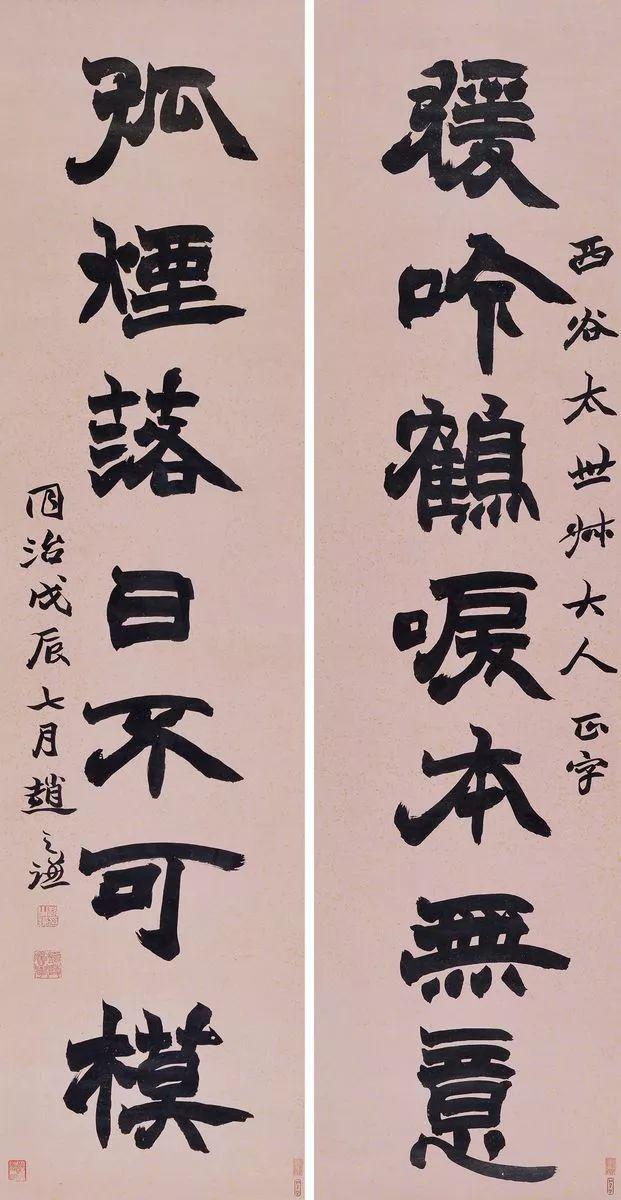 西谷太世叔大人正字
猨吟鶴唳本無意
孤煙落日不可模
同治戊辰七月趙之謙